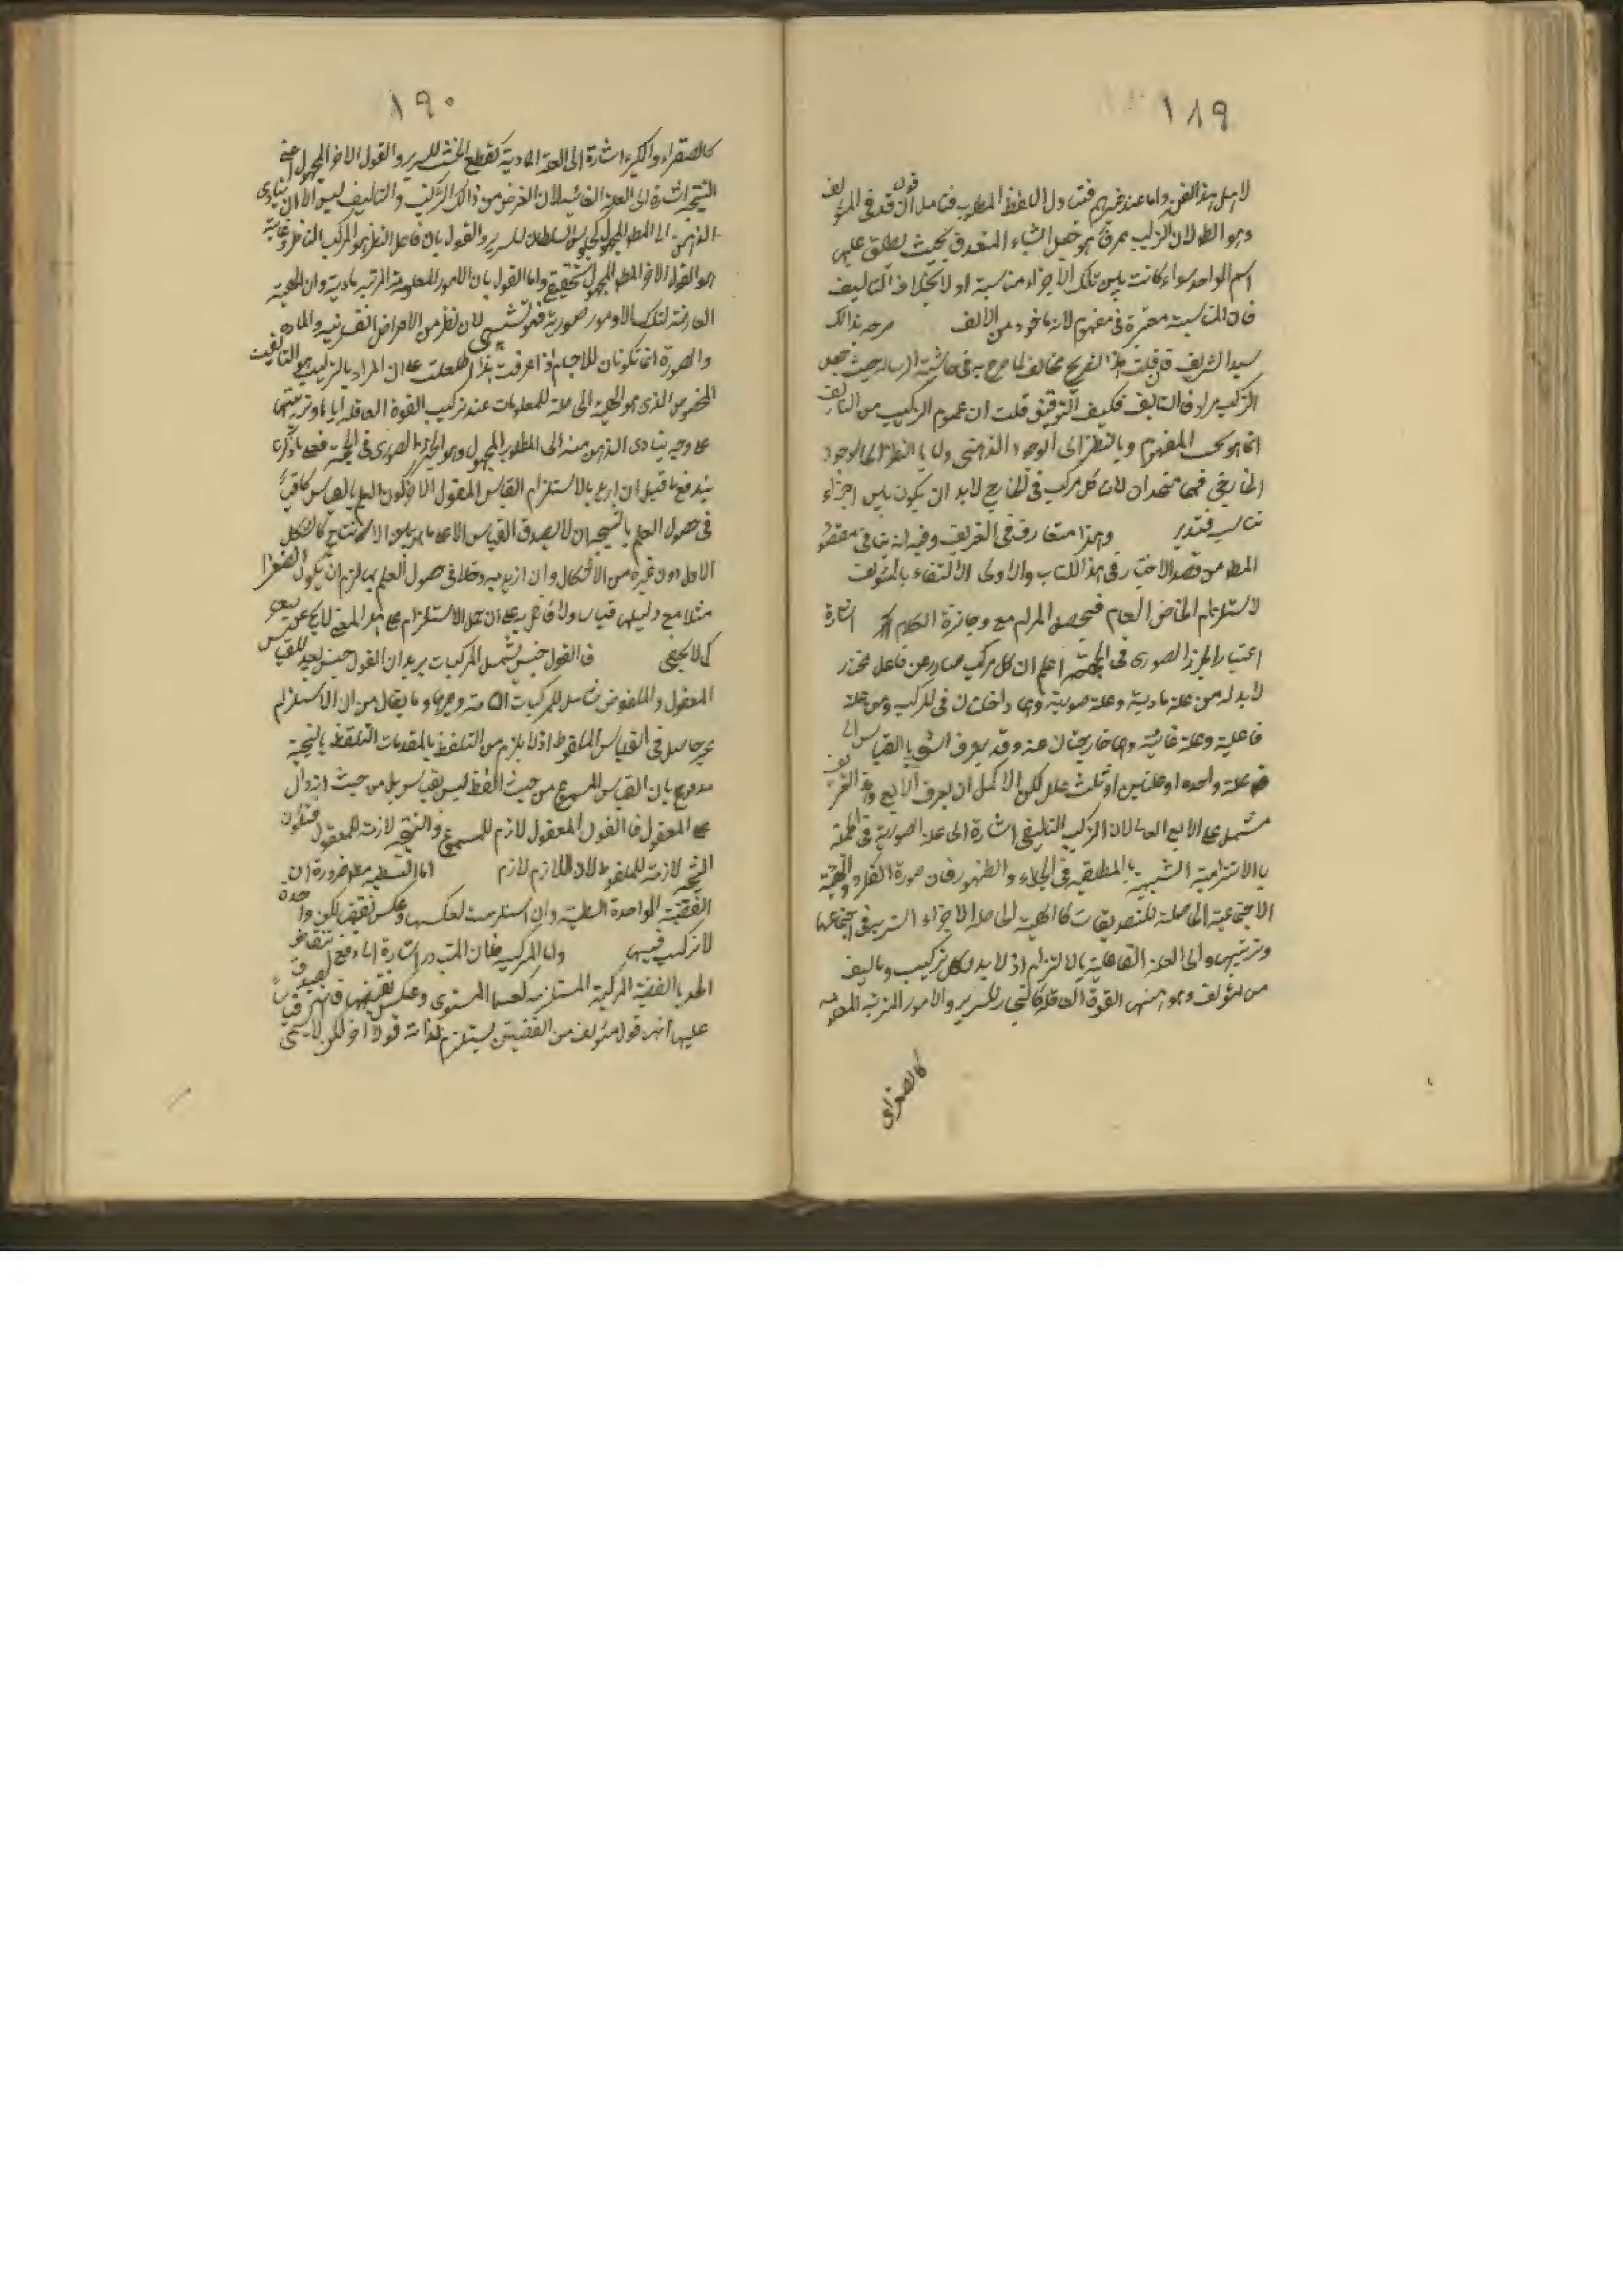 ١٨٩
لاهل هذا الفن واما عند غيرهم فتناول اللفظ المطلوب فتامل قوله ان قد في المؤلف
وهو الط لان التركيب مرق هو جعل اشياء المتعددة بحيث يطلق عليها
اسم الواحد سواء كانت بين تلك الاجزاء مناسبة او لا بخلاف التاليف
فان المناسبة معتبرة في مفهومه لانه ماخوذ من الالف صرحه بذالك
سيد الشريف فان قلت هذا التصريح مخالف لما صرح به في حاشية الرسالة حيث جعل
التركيب مرادف التاليف فكيف التوفيق قلت ان عموم التركيب من التاليف
انما هو بحسب المفهوم وبالنظر الى الوجود الذهني ولا بالنظر الى الوجود
الخارجي فهما متحدان لان كل مركب في الخارج لابد ان يكون بين اجزاء
تناسب فتدبر وهذا متعارف في التعريف وفيه انه ينافي مقصود
المط من قصد الاختصار في هذا الكتاب والاولى الاكتفاء بالمؤلف
لاستلزام الخاص العام فيحصل المرام مع وجازة الكلام اشارة
اعتبار الجزء الصوري في الحجة اعلم ان كل مركب صادر عن فاعل مختار
لا بد له من علة مادية وعلة صورية وهما داخلتان في المركب ومن علة
فاعلية وعلة غائية وهما خارجتان عنه وقد يعرف الشيء بالقياس الى
علة واحدة او علتين او ثلث علل لكن الاكمل ان يعرف الاربع وهذا التعريف
مشتمل على الاربع العلل لان التركيب التاليفي اشارة الى علة الصورية في الحجة
بالالتزامية الشبيهة بالمطابقية في الجلاء والظهور فان صورة الفكر والهيئة
الاجتماعية الحاصلة للتصديقات كالهيئة الحاصلة لاجزاء السرير في اجتماعها
وترتيبها والى العلة الفاعلية بالالتزام اذ لا بد لكل تركيب وتاليف
من مؤلف وهو ههنا القوة العاقلة كالنجار للسرير والامور المرتبة المعلومة
كالصغرى
١٩٠
كالصغراء والكبراء اشارة الى العلة المادية كقطع الخشب للسرير والقول الاخر المجهول اعني
النتيجة اشارة الى العلة الغائية لان الغرض من ذالك التركيب والتاليف ليس الا ان يتادى
الذهن الى المط المجهول كجلوس السلطان للسرير والقول بان فاعل النظر هو المركب الناظر وغاية
هو القول الاخر المط المجهول تحقيقي واما القول بان الامور المعلومة المرتبة مادية وان الهيئة
العارضة لتلك الامور صورية فهو تشبيهي لان نظر من الاعراض النفسانية والمادة
والصورة انما تكونان للاجسام اذا عرفت هذا اطلعت على ان المراد بالتركيب هو التاليف
المخصوص الذي هو الهيئة الحاصلة للمعلومات عند تركيب القوة العاقلة اياها وترتيبها
على وجه يتادى الذهن منه الى المطلوب المجهول وهو الجزء الصوري في الحجة فبما ذكرنا
يندفع ما قيل ان اريد بالاستلزام القياس المقول الاخر كون العلم بالقياس كافيا
في حصول العلم بالنتيجة ان لا يصدق القياس الا على ما هو بين الانتاج كالشكل
الاول دون غيره من الاشكال وان اريد به دخلا في حصول العلم بها لزم ان يكون الصغرا
مثلا مع دليلها قياس ولا قائل به على ان حمل الاستلزام على هذا المعنى لا يخ عن بعد
كما لا يخفى فالقول جنس يشمل المركبات يريد ان القول جنس بعيد للقياس
المعقول والملفوظ شامل للمركبات التامة وغيرها وما يقال من ان الاستلزام
غير حاصل في القياس الملفوظ اذ لا يلزم من التلفظ بالمقدمات التلفظ بالنتيجة
مدفوع بان القياس المسموع من حيث اللفظ ليس بقياس بل من حيث انه دال
على المعقول فالقول المعقول لازم للمسموع والنتيجة لازمة للمعقول فتكون
النتيجة لازمة للملفوظ لان اللازم لازم اما البسيطة مط ضرورة ان
القضية الواحدة البسيطة وان استلزمت لعكسها وعكس نقيض لكن واحدة
لا تركب فيها واما المركبة فان المتبادر اشارة الى دفع تنقاض
الحد بالقضية المركبة المستلزمة لعكسها المستوى وعكس نقيضها فانهم يصدق
عليها انه قول مؤلف من القضيتين يستلزم لذاته قولا اخر لكن لا يسمى قياسا